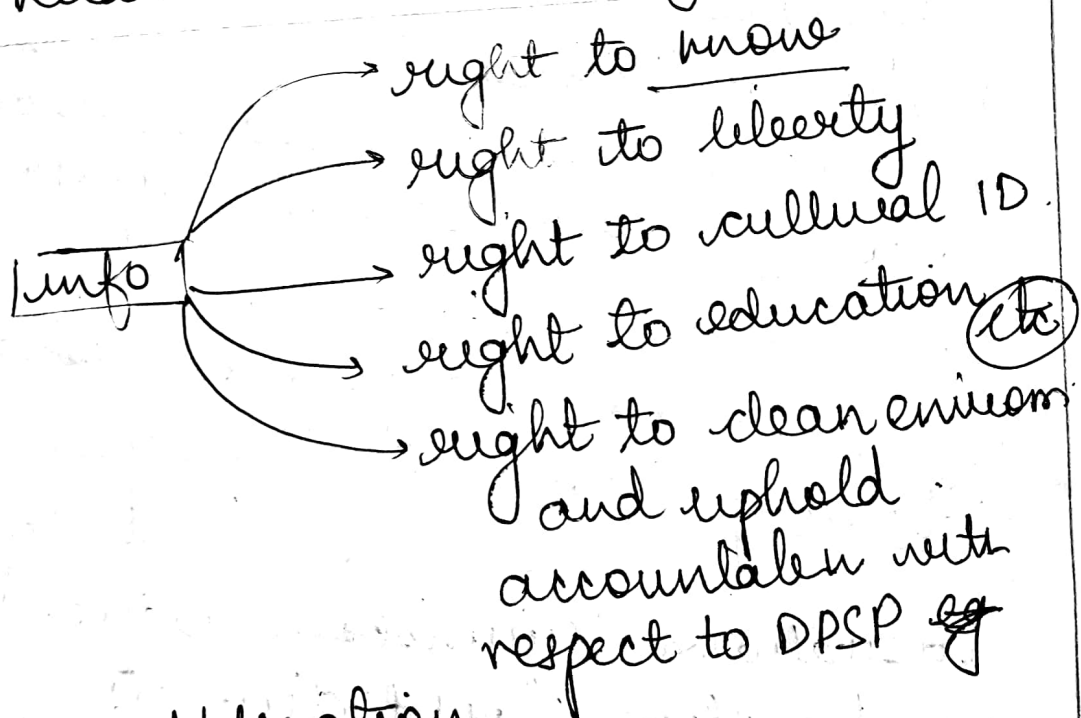 right to know
right to liberty
right to cultural ID.
info
right to education
etc
right to clean environ
and uphold
accountaben with
respect to DPSP